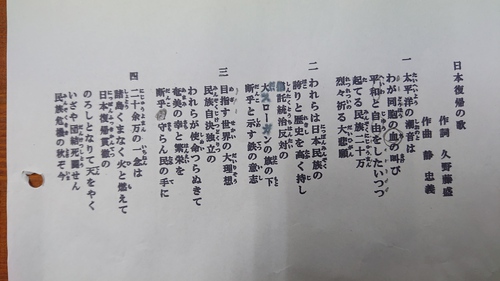 日本復帰の歌
作詞 久野藤盛
作曲 静 忠義
一 太平洋の潮音は
わが同胞の血の叫び
平和と自由をしたいつつ
起てる民族二十万
烈々祈る大悲願
二 われらは日本民族の
誇りと歴史を高く持し
信託統治反対の
大スローガンの旗の下
断乎と示す鉄の意志
三 目指す世界の大理想
民族自決独立の
われらが使命つらぬきて
奄美の幸と繁栄を
断乎守らん民の手に
四 二十余万の一念は
諸島くまなく火と燃えて
日本復帰貫徹の
のろしとなりて天をやく
いざや団結死闘せん
民族危機の秋ぞ今